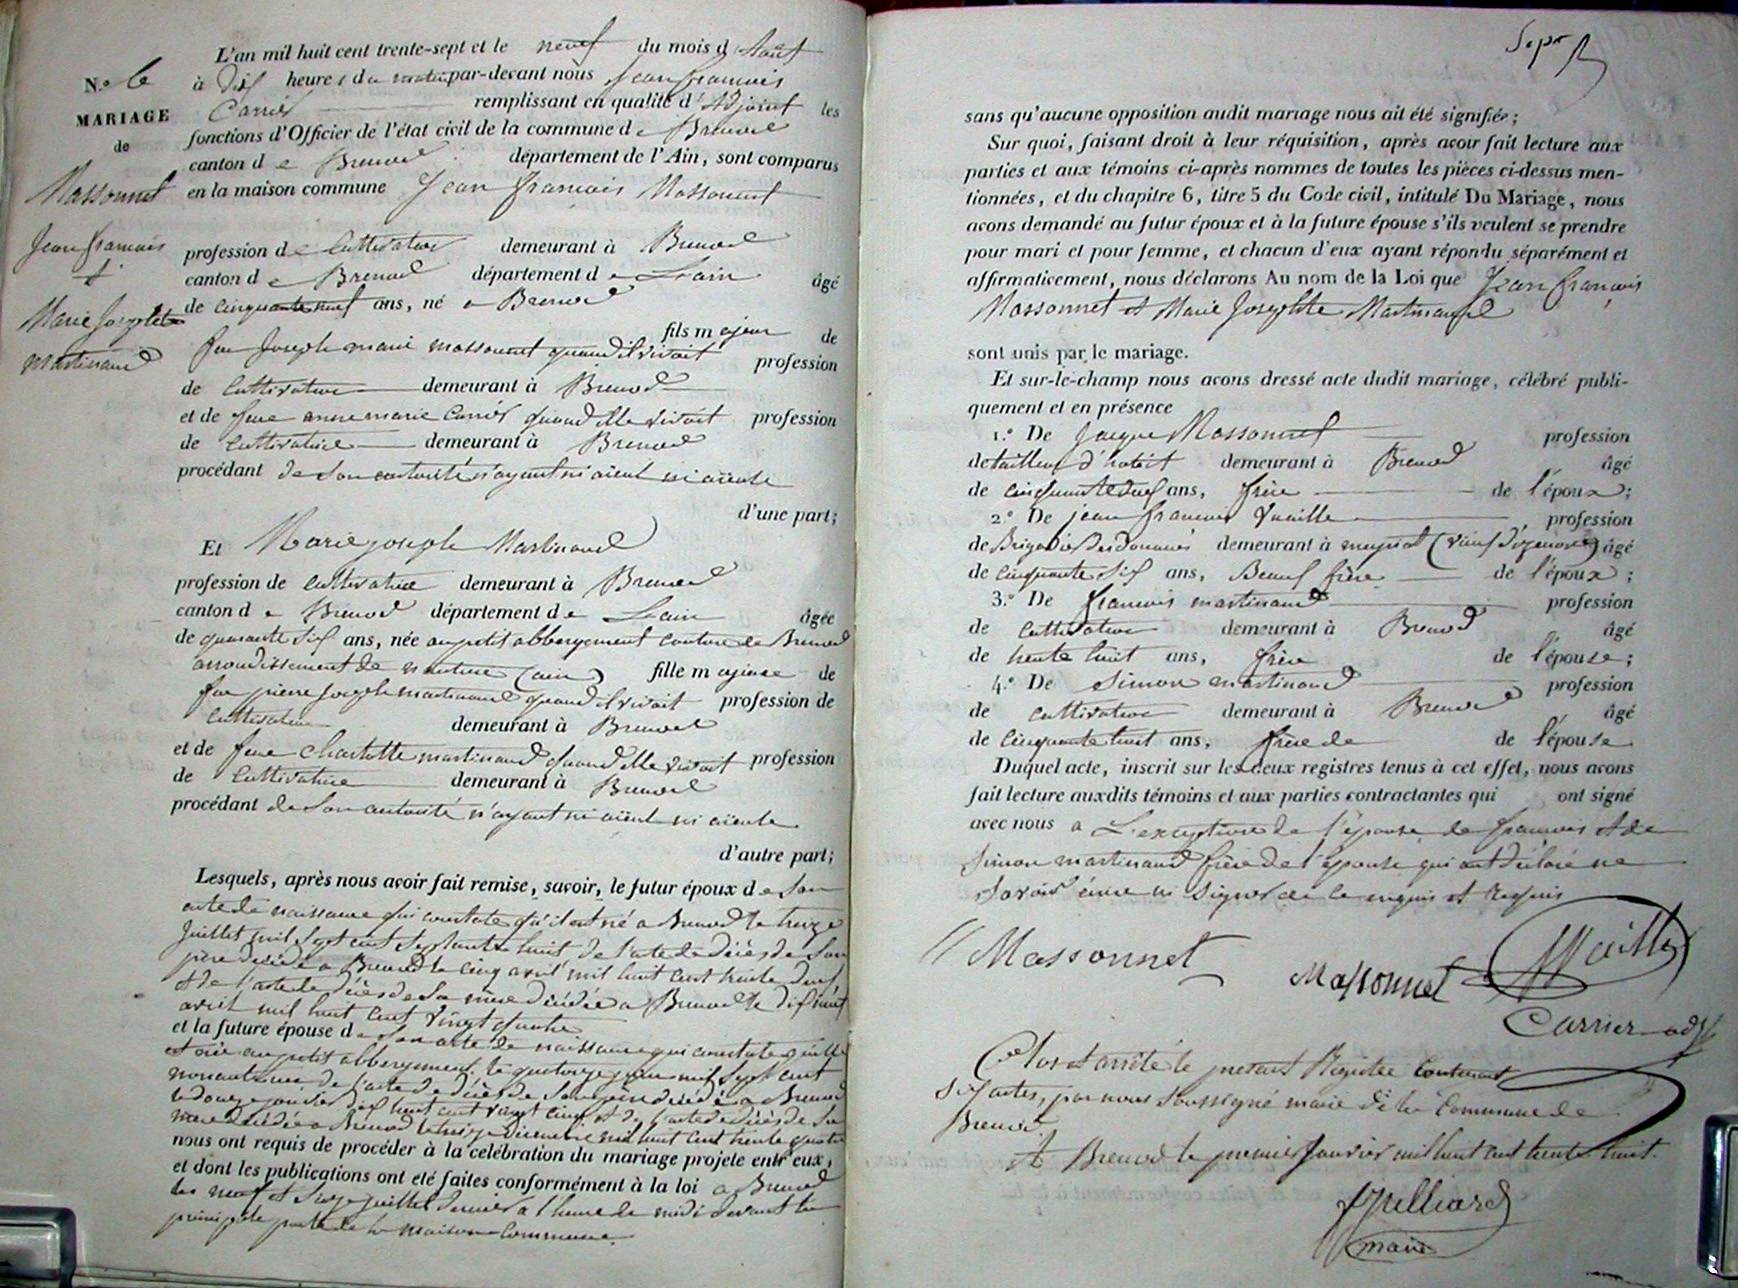 L'an mil huit cent trente-sept et le neuf du mois d'Août
N.o 6
à Dix heures du matin par-devant nous Jean françois
MARIAGE
Carrier remplissant en qualité d'Adjoint les
de
fonctions d'Officier de l'état civil de la commune de Brenod
canton de Brenod département de l'Ain, sont comparus
Massonnet
en la maison commune Jean françois Massonnet
Jean francois
&
Marie Josephte
Martinand
profession de Cultivateur demeurant à Brenod
canton de Brenod département de L'ain âgé
de cinquante neuf ans, né a Brenod
fils majeur de
feu Joseph marie massonnet quand il vivoit profession
de Cultivateur demeurant à Brenod
et de feue anne marie Carrier quand elle vivoit profession
de Cultivatrice demeurant à Brenod
procédant de Son autorité n'ayant ni aieul ni aieule
d'une part;
Et Marie joseph Martinand
profession de Cultivatrice demeurant à Brenod
canton de Brenod département de L'ain âgée
de quarante six ans, née au petit abbergement canton de Brenod
arrondissement de nantua (ain) fille majeure de
feu pierre Joseph martinand quand il vivoit profession de
Cultivateur demeurant à Brenod
et de feue Charlotte martinand quand elle vivoit profession
de Cultivatrice demeurant à Brenod
procédant de Son autorité n'ayant ni aieul ni aieule
d'autre part;
Lesquels, après nous avoir fait remise, savoir, le futur époux de Son
acte de naissance qui constate qu'il est né a Brenod le treize
Juillet mil Sept cent Septante huit de l'acte de décès de Son
père décédé a Brenod le cinq avril mil huit cent trente deux
et de l'acte de décès de Sa mère décédée a Brenod le dix huit
avril mil huit cent vingt quatre
et la future épouse de Son acte de naissance qui constate qu'elle
est née au petit abbergement le quatorze juin mil Sept cent
nonante une de l'acte de décès de Son père décédé a Brenod
le douze janvier dix huit cent vingt cinq et de l'acte de décès de Sa
mère décédée a Brenod le treize Décembre mil huit cent trente quatre
nous ont requis de procéder à la célébration du mariage projeté entr'eux,
et dont les publications ont été faites conformément à la loi a Brenod
les neuf et Seize juillet dernier a l'heure de midi devant la
principale porte de la maison Commune.
Sept
sans qu'aucune opposition audit mariage nous ait été signifiée;
Sur quoi, faisant droit à leur réquisition, après avoir fait lecture aux
parties et aux témoins ci-après nommés de toutes les pièces ci-dessus men-
tionnées, et du chapitre 6, titre 5 du Code civil, intitulé Du Mariage, nous
avons demandé au futur époux et à la future épouse s'ils veulent se prendre
pour mari et pour femme, et chacun d'eux ayant répondu séparément et
affirmativement, nous déclarons Au nom de la Loi que Jean françois
Massonnet et Marie Josephte Martinand
sont unis par le mariage.
Et sur-le-champ nous avons dressé acte dudit mariage, célébré publi-
quement et en présence
1.o De Jacque Massonnet profession
de tailleur d'habit demeurant à Brenod âgé
de cinquante deux ans, frère de l'époux;
2.o De jean francois Vuaille profession
de Brigadier des Douanes demeurant à meyriat (vieux d'izenave) âgé
de cinquante Six ans, Beauf frère de l'époux;
3.o De francois martinand profession
de cultivateur demeurant à Brenod âgé
de trente huit ans, frère de l'épouse;
4.o De Simon martinand profession
de cultivateur demeurant à Brenod âgé
de cinquante huit ans, frère de de l'épouse
Duquel acte, inscrit sur les deux registres tenus à cet effet, nous avons
fait lecture auxdits témoins et aux parties contractantes qui ont signé
avec nous a L'exception de l'épouse de francois et de
Simon martinand frère de l'épouse qui ont déclaré ne
Savoir écrire ni Signer de ce enquis et requis
Massonnet Massonnet Vuaille
Carrier adjt
Clos et arrêté le présent Registre Contenant
Six actes, par nous Soussigné maire de la Commune de
Brenod
A Brenod le premier Janvier mil huit cent trente huit.
Juilliard
maire